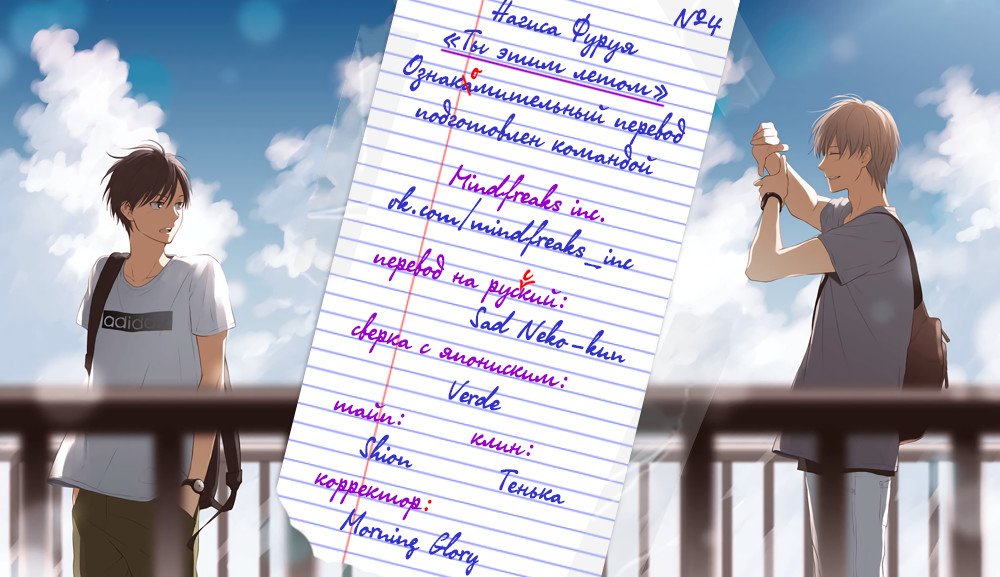 №4
Нагиса Фуруя
«Ты этим летом»
о
Ознакамительный перевод
подготовлен командой
Mindfreaks inc.
vk.com/mindfreaks_inc
с
перевод на руский:
Sad Neko-kun
сверка с япониским:
Verde
тайп:
клин:
Shion
Тенька
корректор:
Morning Glory
adidas